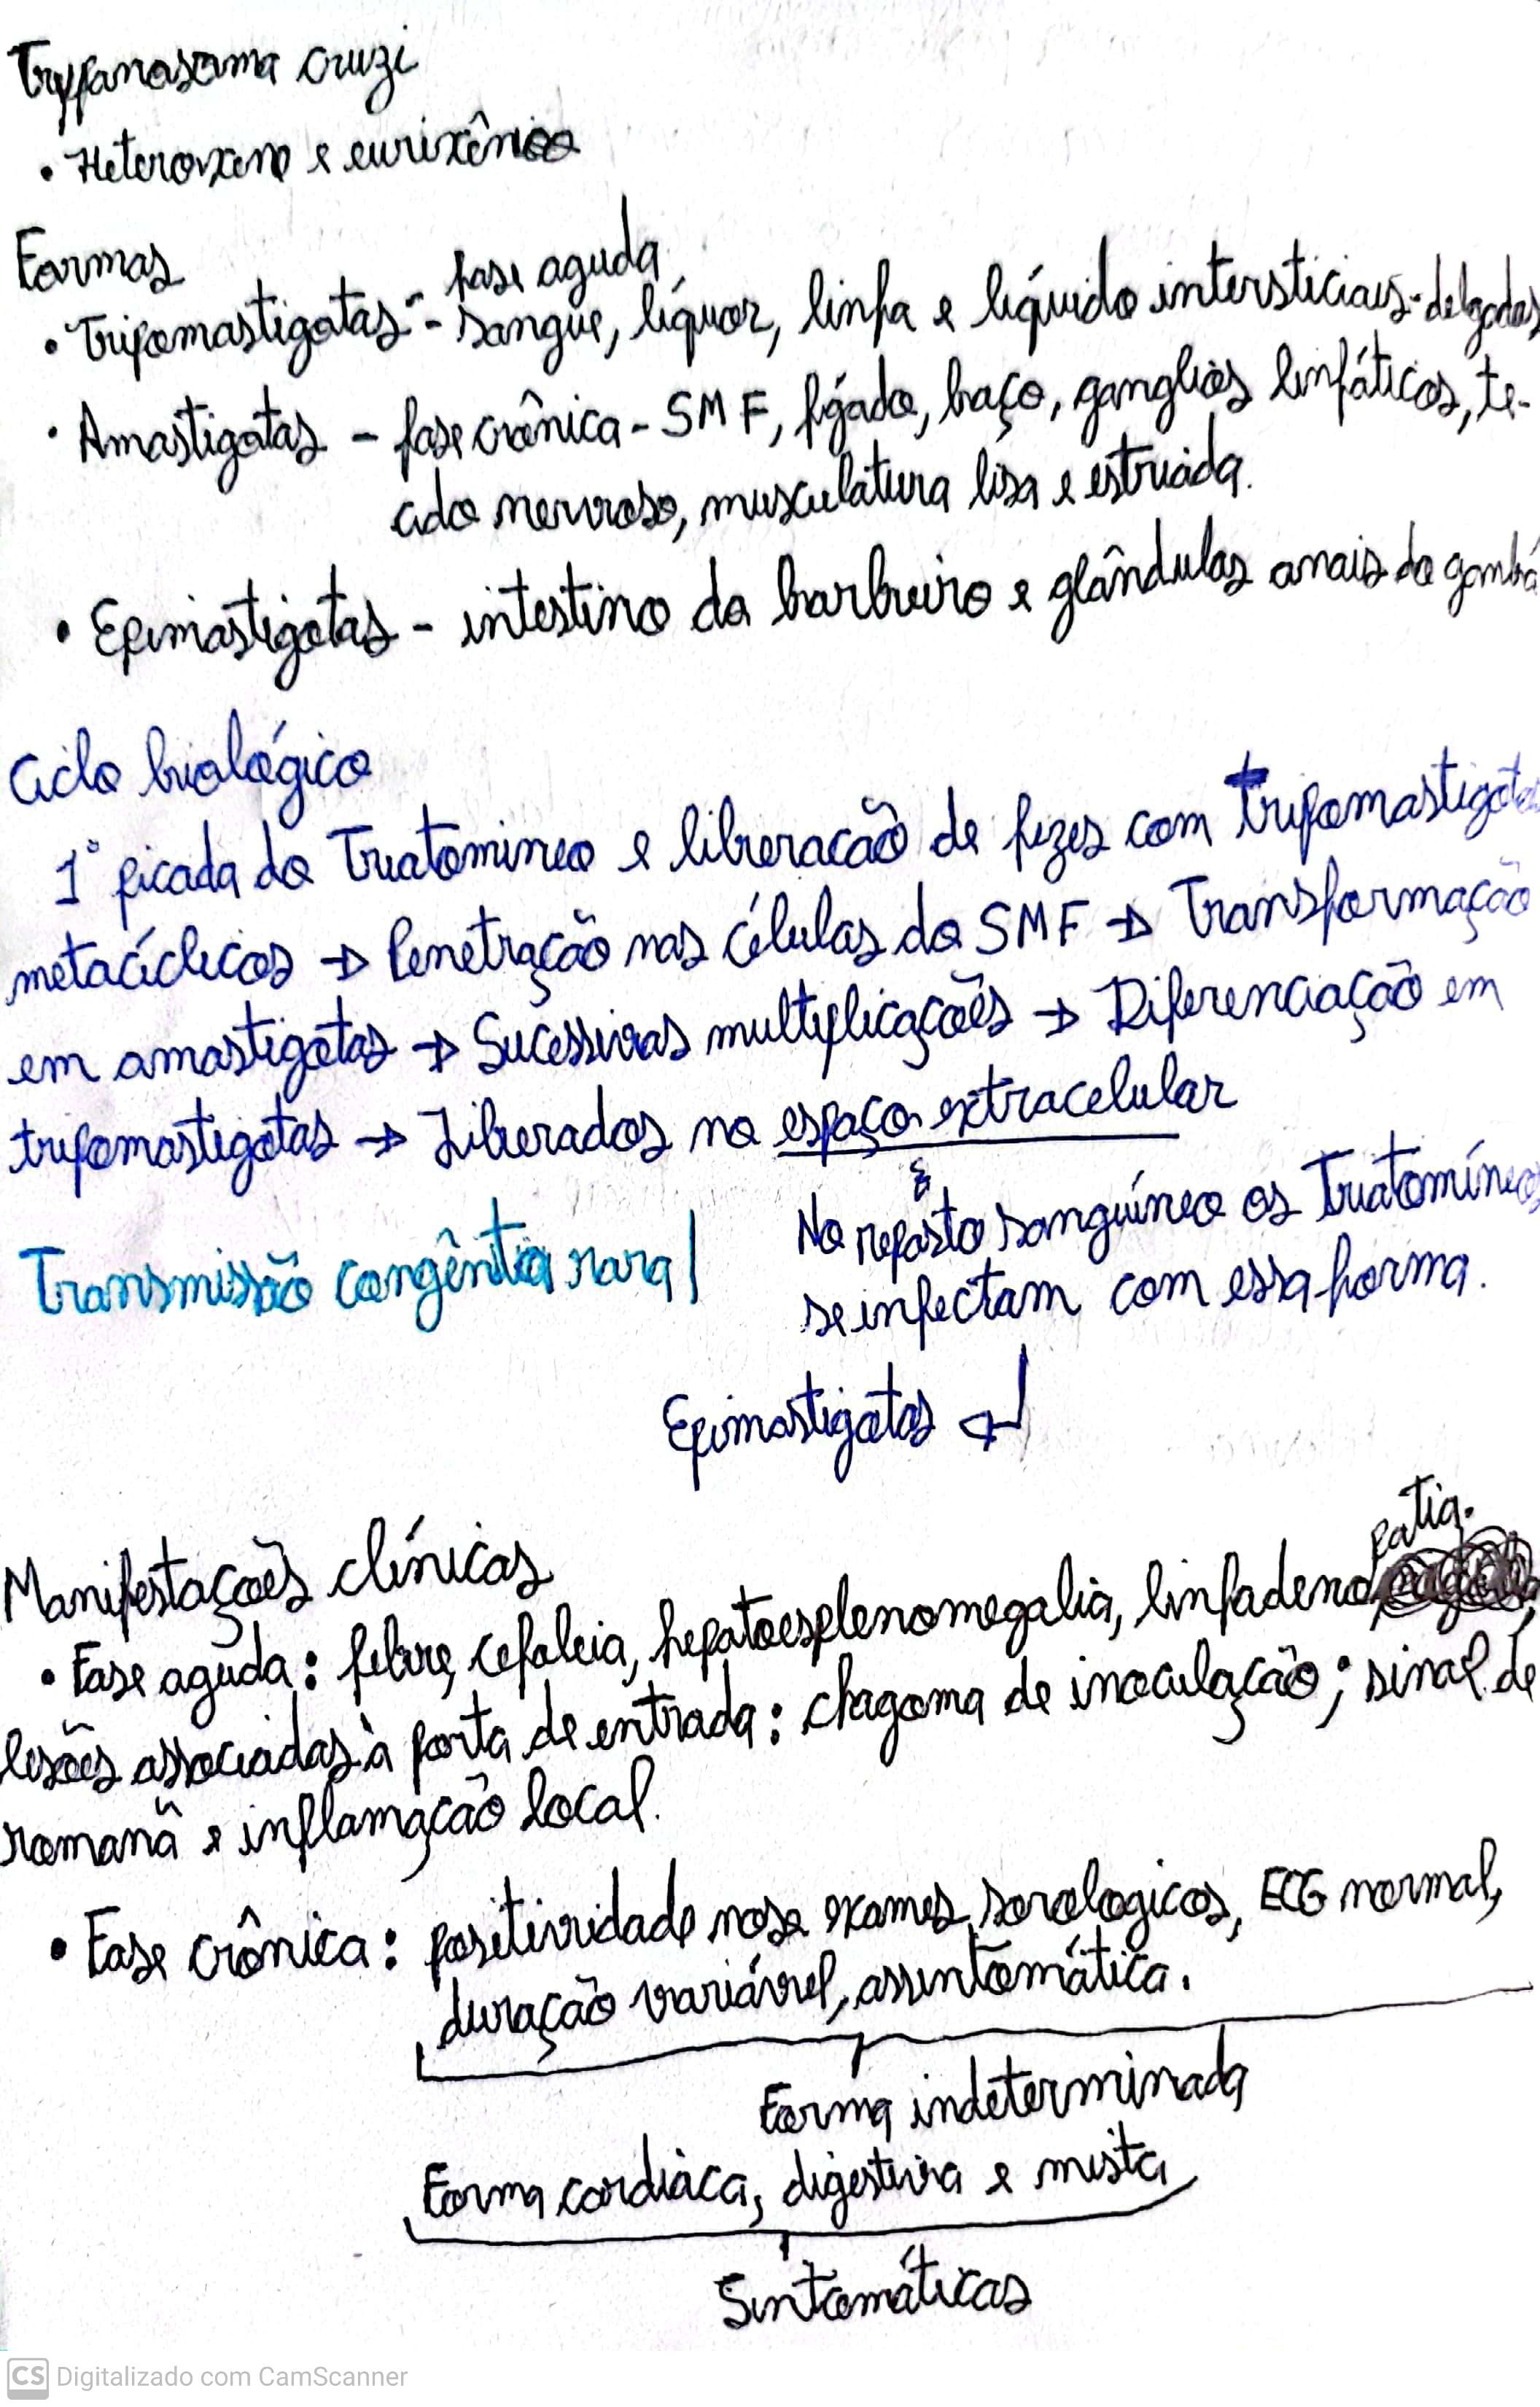 Trypanosoma cruzi
• Heteroxeno e eurixênico
Formas
fase aguda
• Tripomastigotas - sangue, líquor, linfa e líquido intersticiais - delgadas
• Amastigotas - fase crônica - SMF, fígado, baço, ganglios linfáticos, te-
cido nervoso, musculatura lisa e estriada.
• Epimastigotas - intestino do barbeiro e glândulas anais do gambá
Ciclo biológico
1° picada do Triatomineo e liberacão de fezes com tripomastigotas
metacíclicos → Penetração nas células do SMF → Transformação
em amastigotas → Sucessivas multiplicações → Diferenciação em
tripomastigotas → Liberados no espaço extracelular
No repasto sanguíneo os Triatomíneos
se infectam com essa forma.
Transmissão congênita rara!
Epimastigotas ↵
Manifestações clínicas
• Fase aguda: febre, cefaleia, hepatoesplenomegalia, linfadenopatia.
lesões associadas à porta de entrada: chagoma de inoculação; sinal de
romanã e inflamação local.
• Fase crônica: positividade nos exames sorologicos, ECG normal,
duração variável, assintomática.
Forma indeterminada
Forma cardiaca, digestiva e mista
Sintomáticas
CS Digitalizado com CamScanner